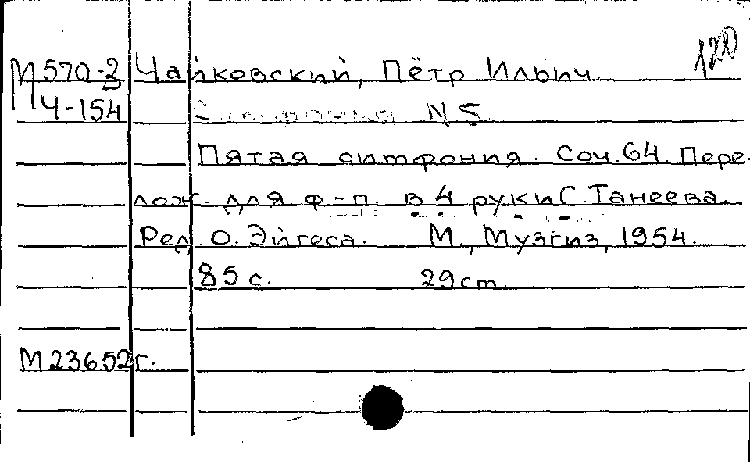 120
М570-3 Чайковский, Пётр Ильич
Ч-154 Симфония N 5
Пятая симфония. Соч. 64. Пере-
лож. для ф-п. в 4 руки С. Танеева.
Ред. О. Эйгеса. М., Музгиз, 1954.
85 с. 29 см.
М23652г.